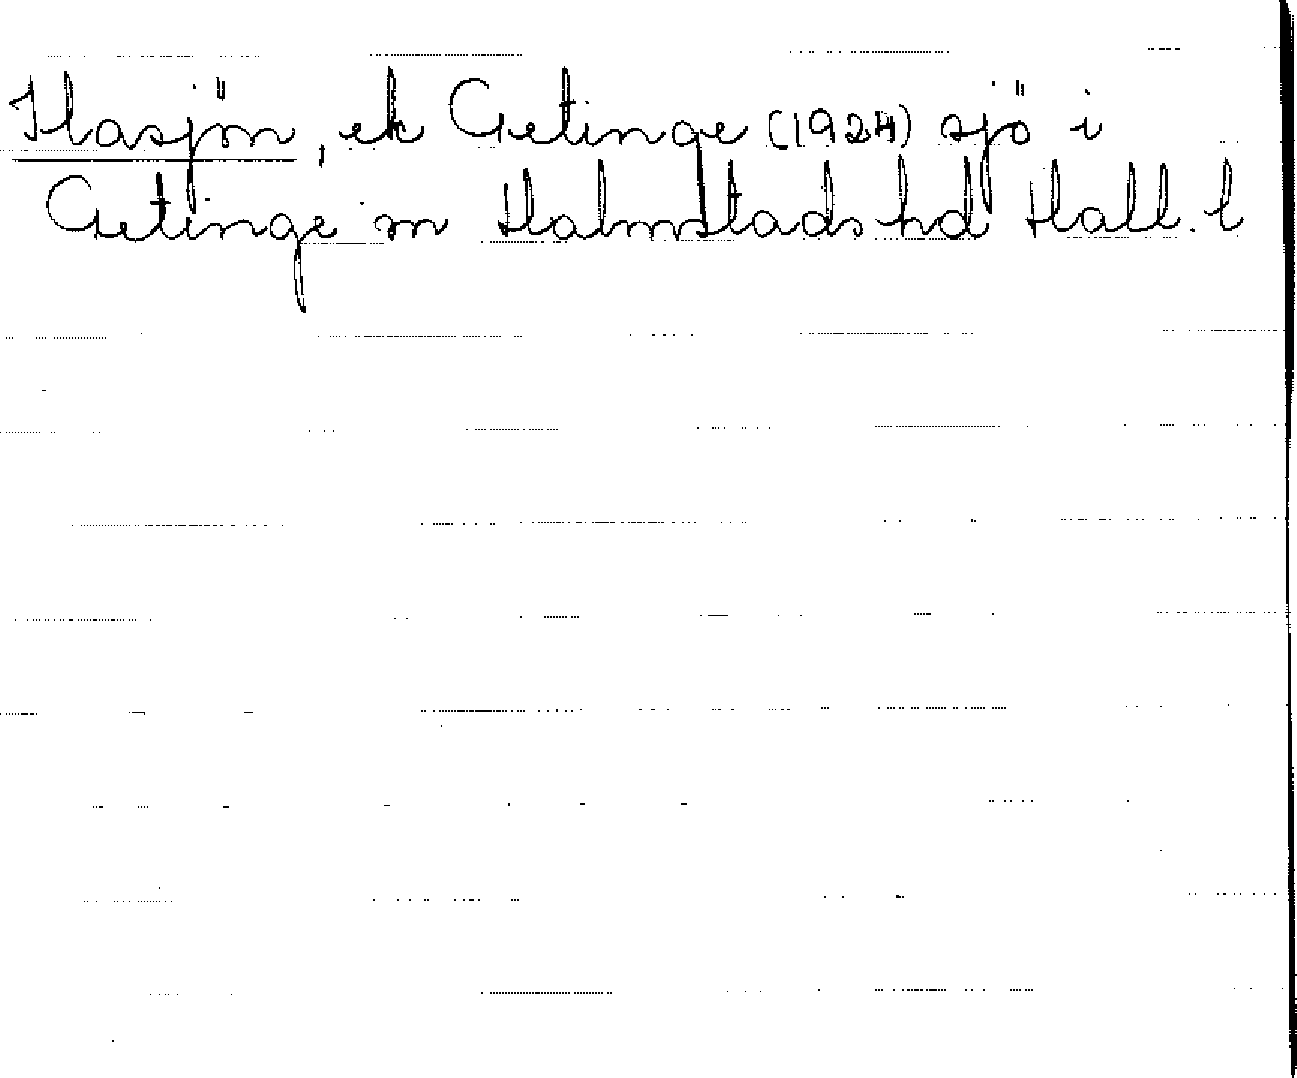 Hasjön, ek Getinge (1924) sjö i
Getinge sn Halmstads hd Hall. l